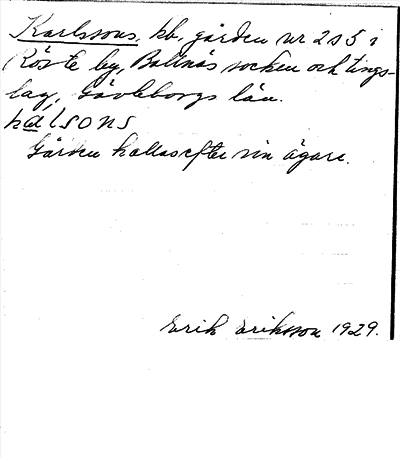 Karlssons, kb, gården nr 2 o 5 i
Röste by, Bollnäs socken och tings-
lag, Gävleborgs län.
kalsons
Gården kallas efter sin ägare.
Erik Eriksson 1929.